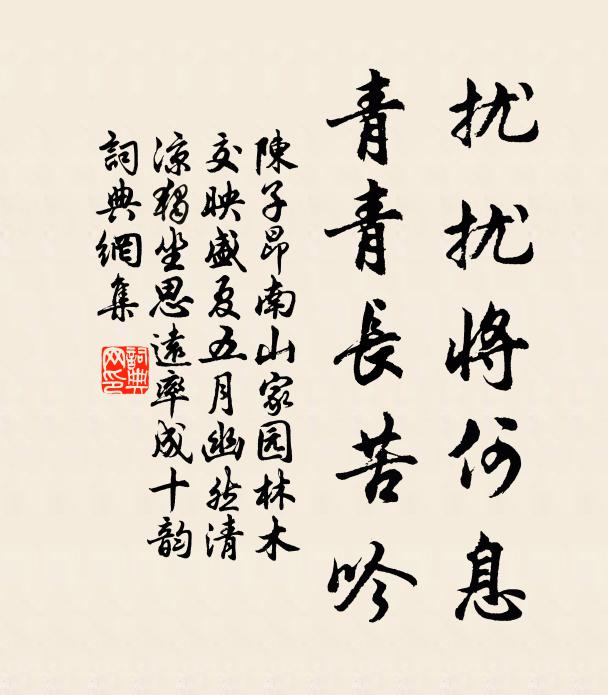 扰扰将何息
青青長苦吟
陳子昂南山家园林木
交映盛夏五月幽然清
凉獨坐思遠率成十韵
詞典網集
詞典网印